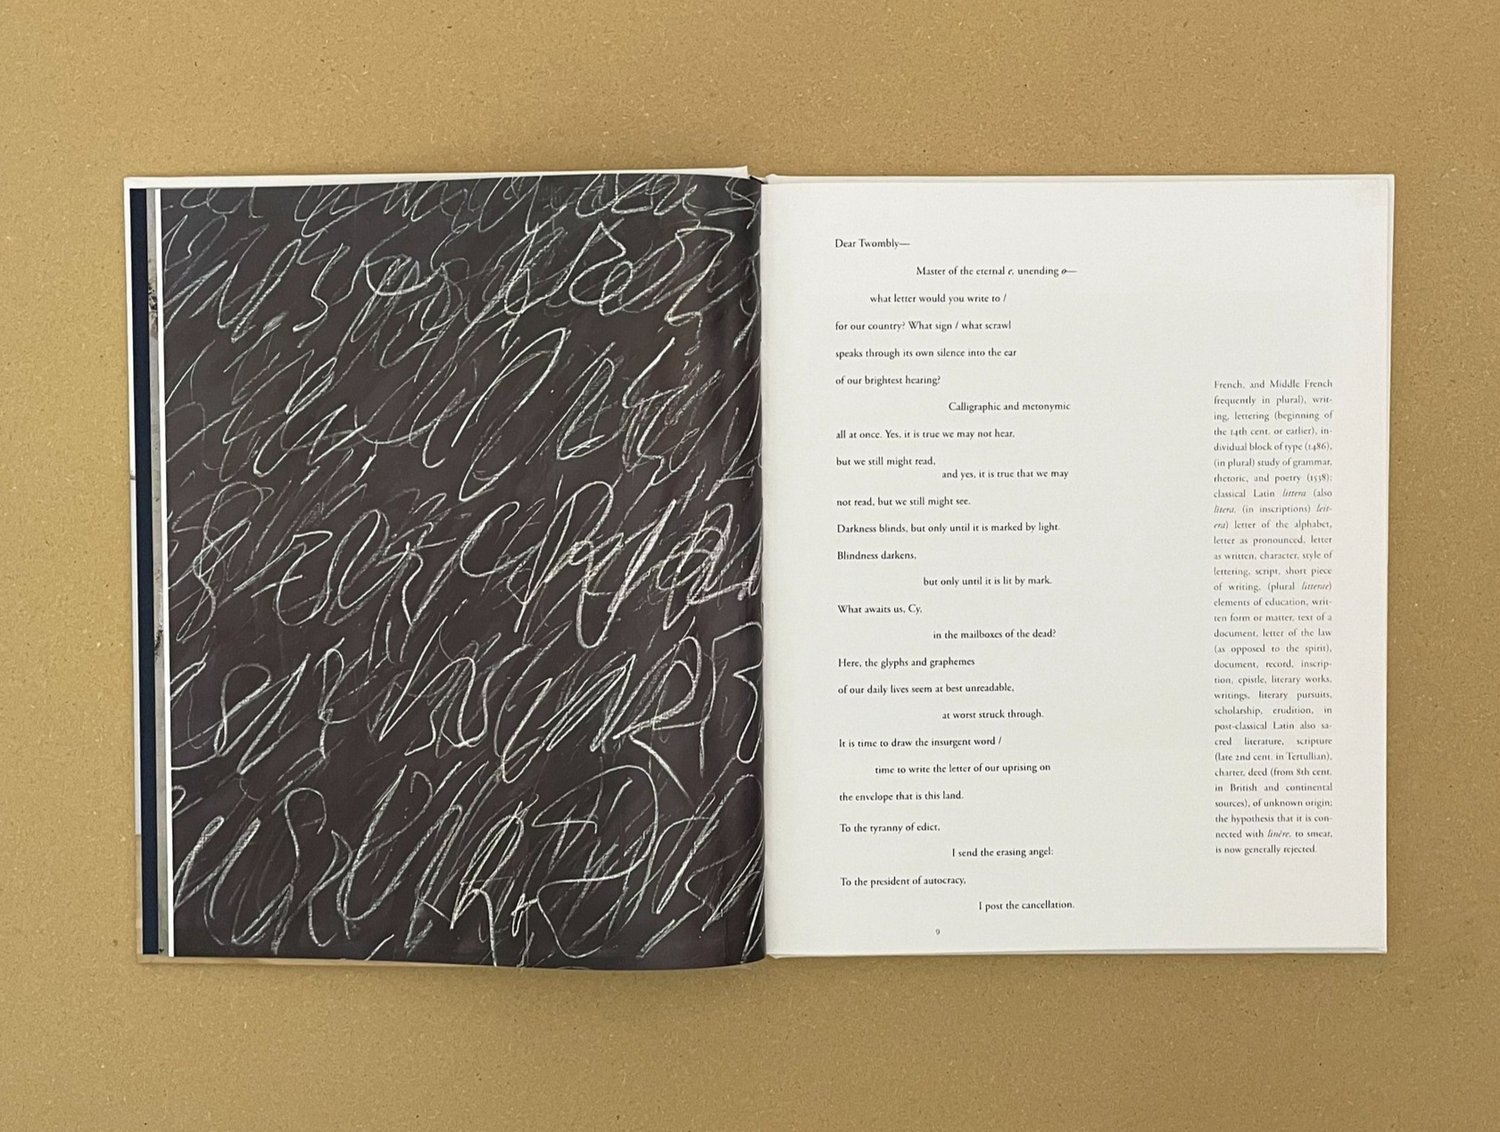 Dear Twombly—
Master of the eternal e, unending o—
what letter would you write to /
for our country? What sign / what scrawl
speaks through its own silence into the ear
of our brightest hearing?
Calligraphic and metonymic
all at once. Yes, it is true we may not hear,
but we still might read,
and yes, it is true that we may
not read, but we still might see.
Darkness blinds, but only until it is marked by light.
Blindness darkens,
but only until it is lit by mark.
What awaits us, Cy,
in the mailboxes of the dead?
Here, the glyphs and graphemes
of our daily lives seem at best unreadable,
at worst struck through.
It is time to draw the insurgent word /
time to write the letter of our uprising on
the envelope that is this land.
To the tyranny of edict,
I send the erasing angel;
To the president of autocracy,
I post the cancellation.
9
French, and Middle French
frequently in plural), writ-
ing, lettering (beginning of
the 14th cent. or earlier), in-
dividual block of type (1486),
(in plural) study of grammar,
rhetoric, and poetry (1538);
classical Latin littera (also
litera, (in inscriptions) leit-
era) letter of the alphabet,
letter as pronounced, letter
as written, character, style of
lettering, script, short piece
of writing, (plural litterae)
elements of education, writ-
ten form or matter, text of a
document, letter of the law
(as opposed to the spirit),
document, record, inscrip-
tion, epistle, literary works,
writings, literary pursuits,
scholarship, erudition, in
post-classical Latin also sa-
cred literature, scripture
(late 2nd cent. in Tertullian),
charter, deed (from 8th cent.
in British and continental
sources), of unknown origin;
the hypothesis that it is con-
nected with linēre, to smear,
is now generally rejected.